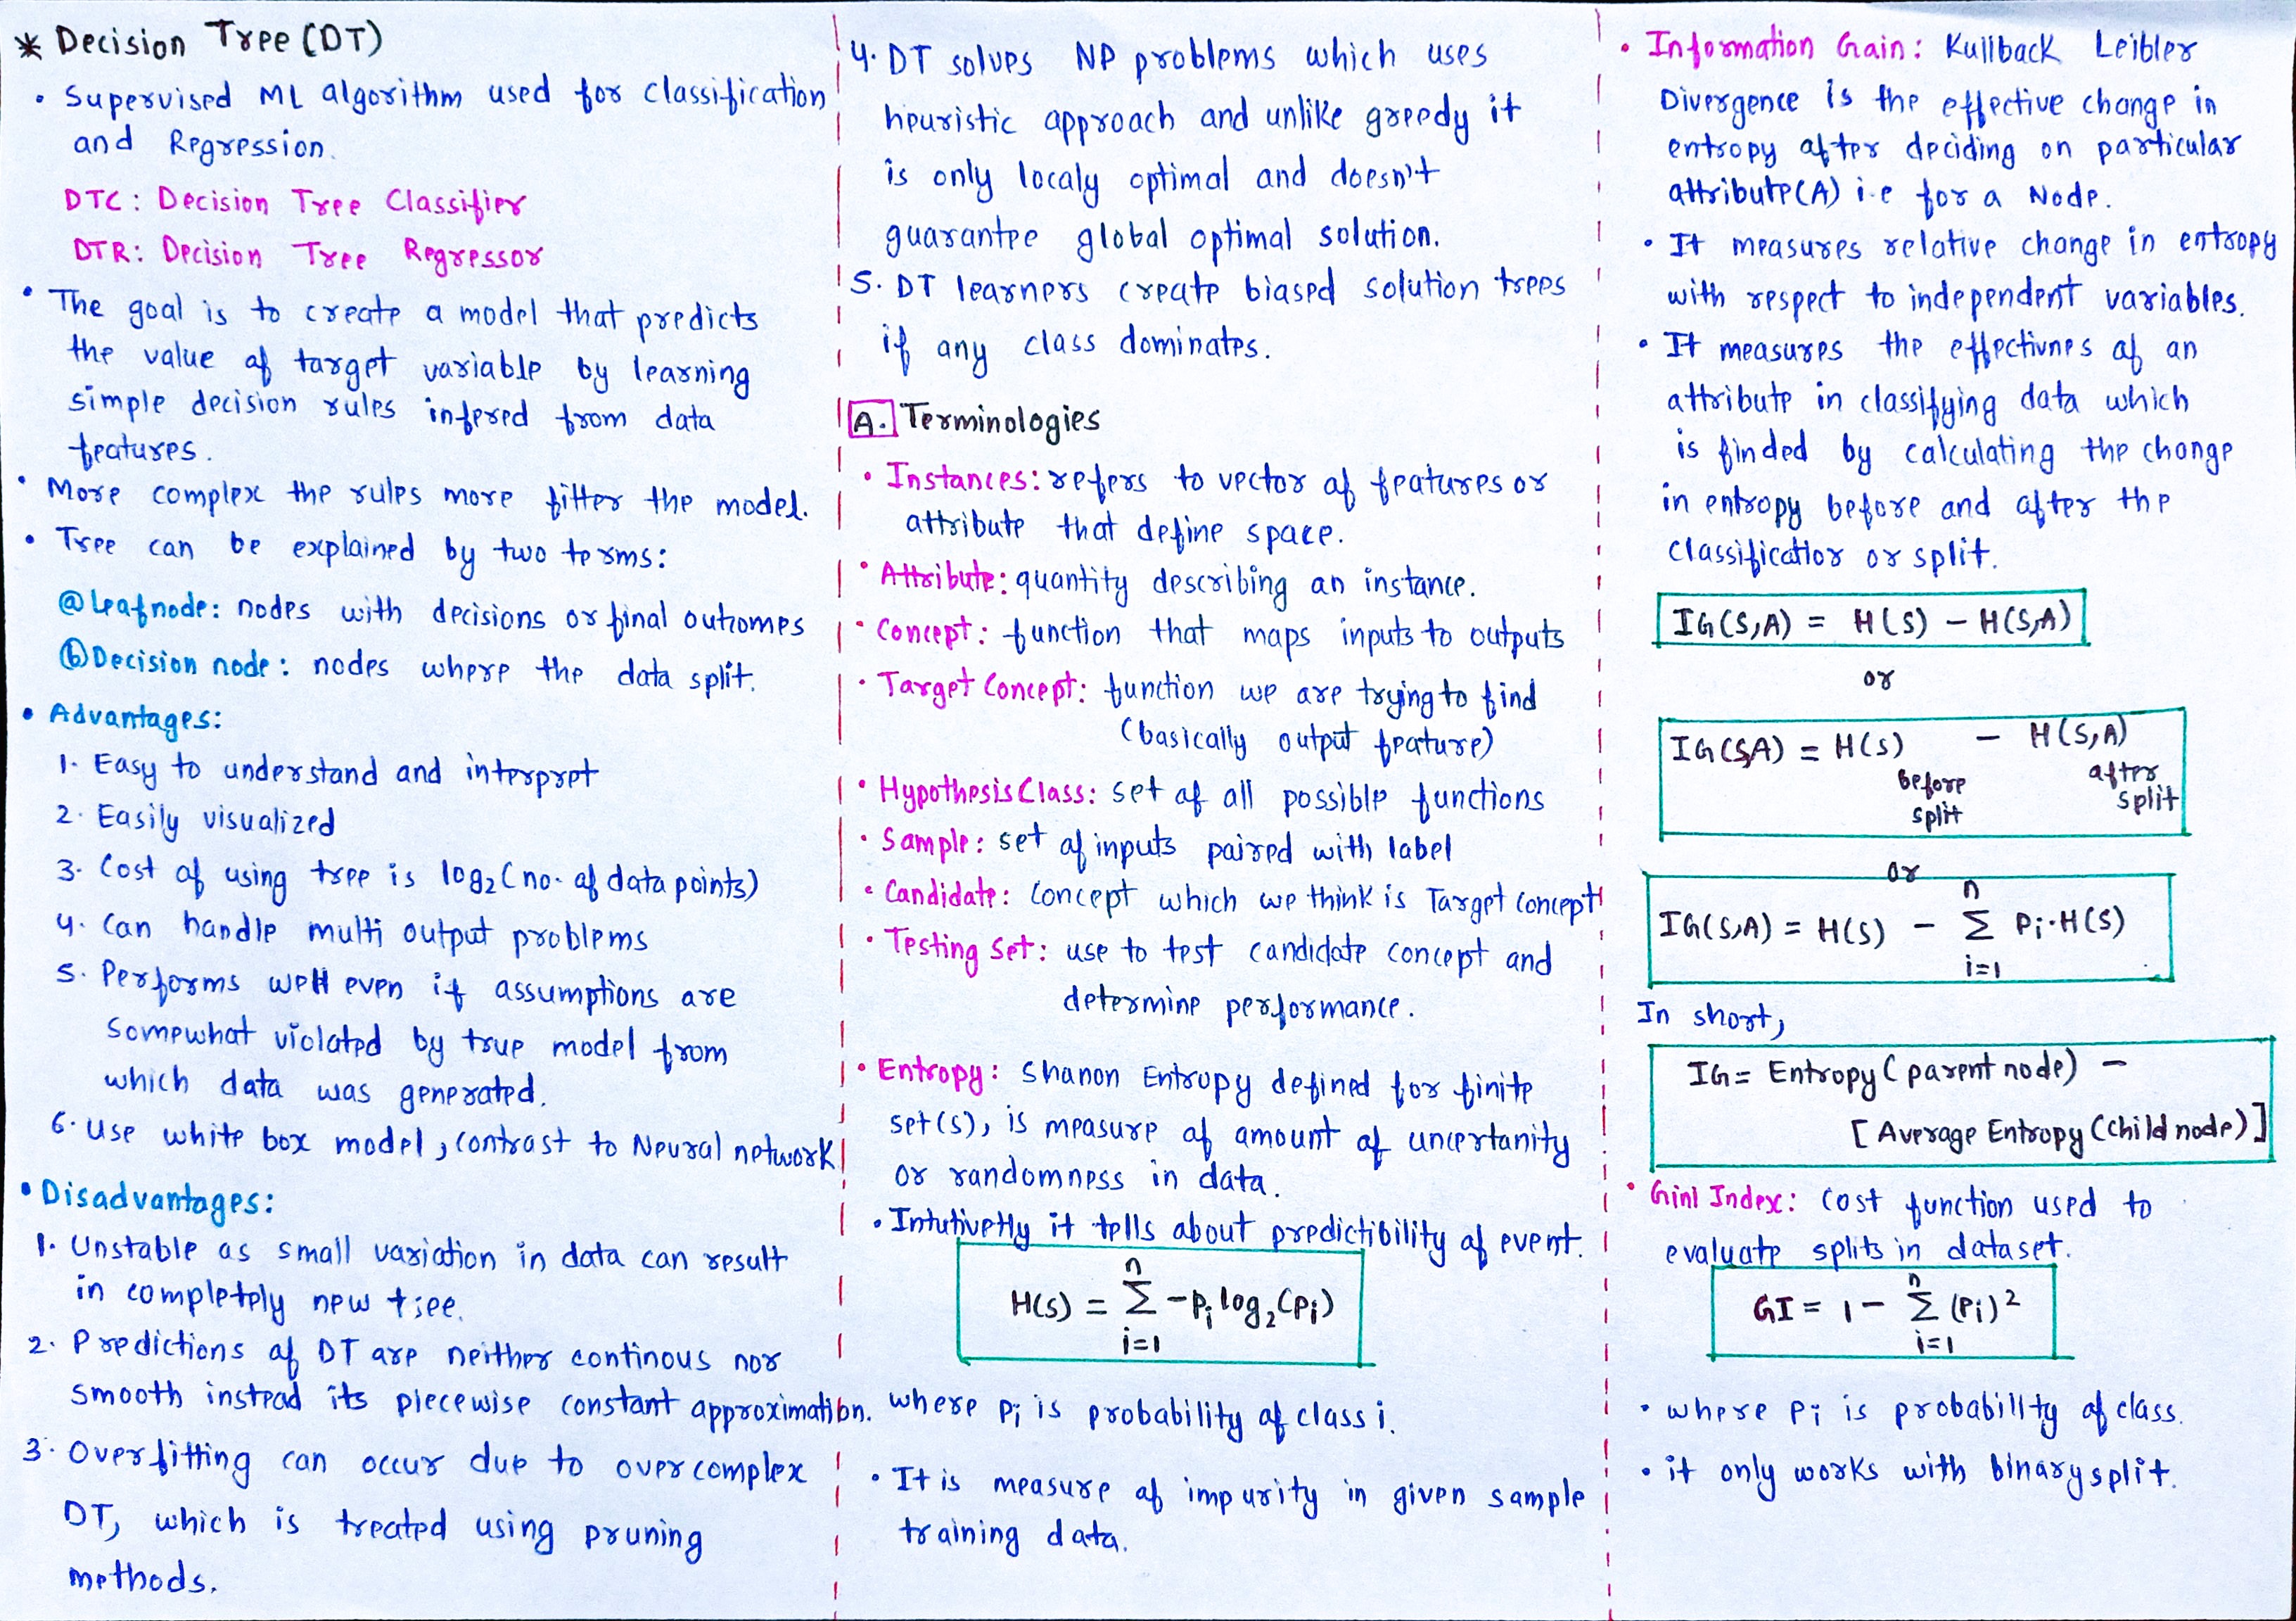 * Decision Tree (DT)
• Supervised ML algorithm used for classification
and Regression.
DTC: Decision Tree Classifier
DTR: Decision Tree Regressor
• The goal is to create a model that predicts
the value of target variable by learning
simple decision rules infered from data
features.
• More complex the rules more fitter the model.
• Tree can be explained by two terms:
ⓐ Leaf node: nodes with decisions or final outcomes
ⓑ Decision node: nodes where the data split.
• Advantages:
1. Easy to understand and interpret
2. Easily visualized
3. Cost of using tree is log₂(no. of data points)
4. Can handle multi output problems
5. Performs well even if assumptions are
somewhat violated by true model from
which data was generated.
6. Use white box model, contrast to Neural network
• Disadvantages:
1. Unstable as small variation in data can result
in completely new tree.
2. Predictions of DT are neither continous nor
smooth instead its piecewise constant approximation.
3. Overfitting can occur due to over complex
DT, which is treated using pruning
methods.
4. DT solves NP problems which uses
heuristic approach and unlike greedy it
is only localy optimal and doesn't
guarantee global optimal solution.
5. DT learners create biased solution trees
if any class dominates.
A. Terminologies
• Instances: refers to vector of features or
attribute that define space.
• Attribute: quantity describing an instance.
• Concept: function that maps inputs to outputs
• Target Concept: function we are trying to find
(basically output feature)
• Hypothesis Class: set of all possible functions
• Sample: set of inputs paired with label
• Candidate: Concept which we think is Target Concept
• Testing Set: use to test candidate concept and
determine performance.
• Entropy: Shanon Entropy defined for finite
set(s), is measure of amount of uncertanity
or randomness in data.
• Intutivetly it tells about predictibility of event.
H(S) = n∑i=1 -Pi log₂(Pi)
where Pi is probability of class i.
• It is measure of impurity in given sample
training data.
• Information Gain: Kullback Leibler
Divergence is the effective change in
entropy after deciding on particular
attribute(A) i.e for a Node.
• It measures relative change in entropy
with respect to independent variables.
• It measures the effectivnes of an
attribute in classifying data which
is finded by calculating the change
in entropy before and after the
classificatior or split.
IG(S,A) = H(S) - H(S,A)
or
IG(S,A) = H(S) - H(S,A)
before split after split
or
IG(S,A) = H(S) - n∑i=1 Pi·H(S)
In short,
IG = Entropy (parent node) -
[Average Entropy (child node)]
• Gini Index: cost function used to
evaluate splits in dataset.
GI = 1 - n∑i=1 (Pi)²
• where Pi is probability of class.
• it only works with binary split.